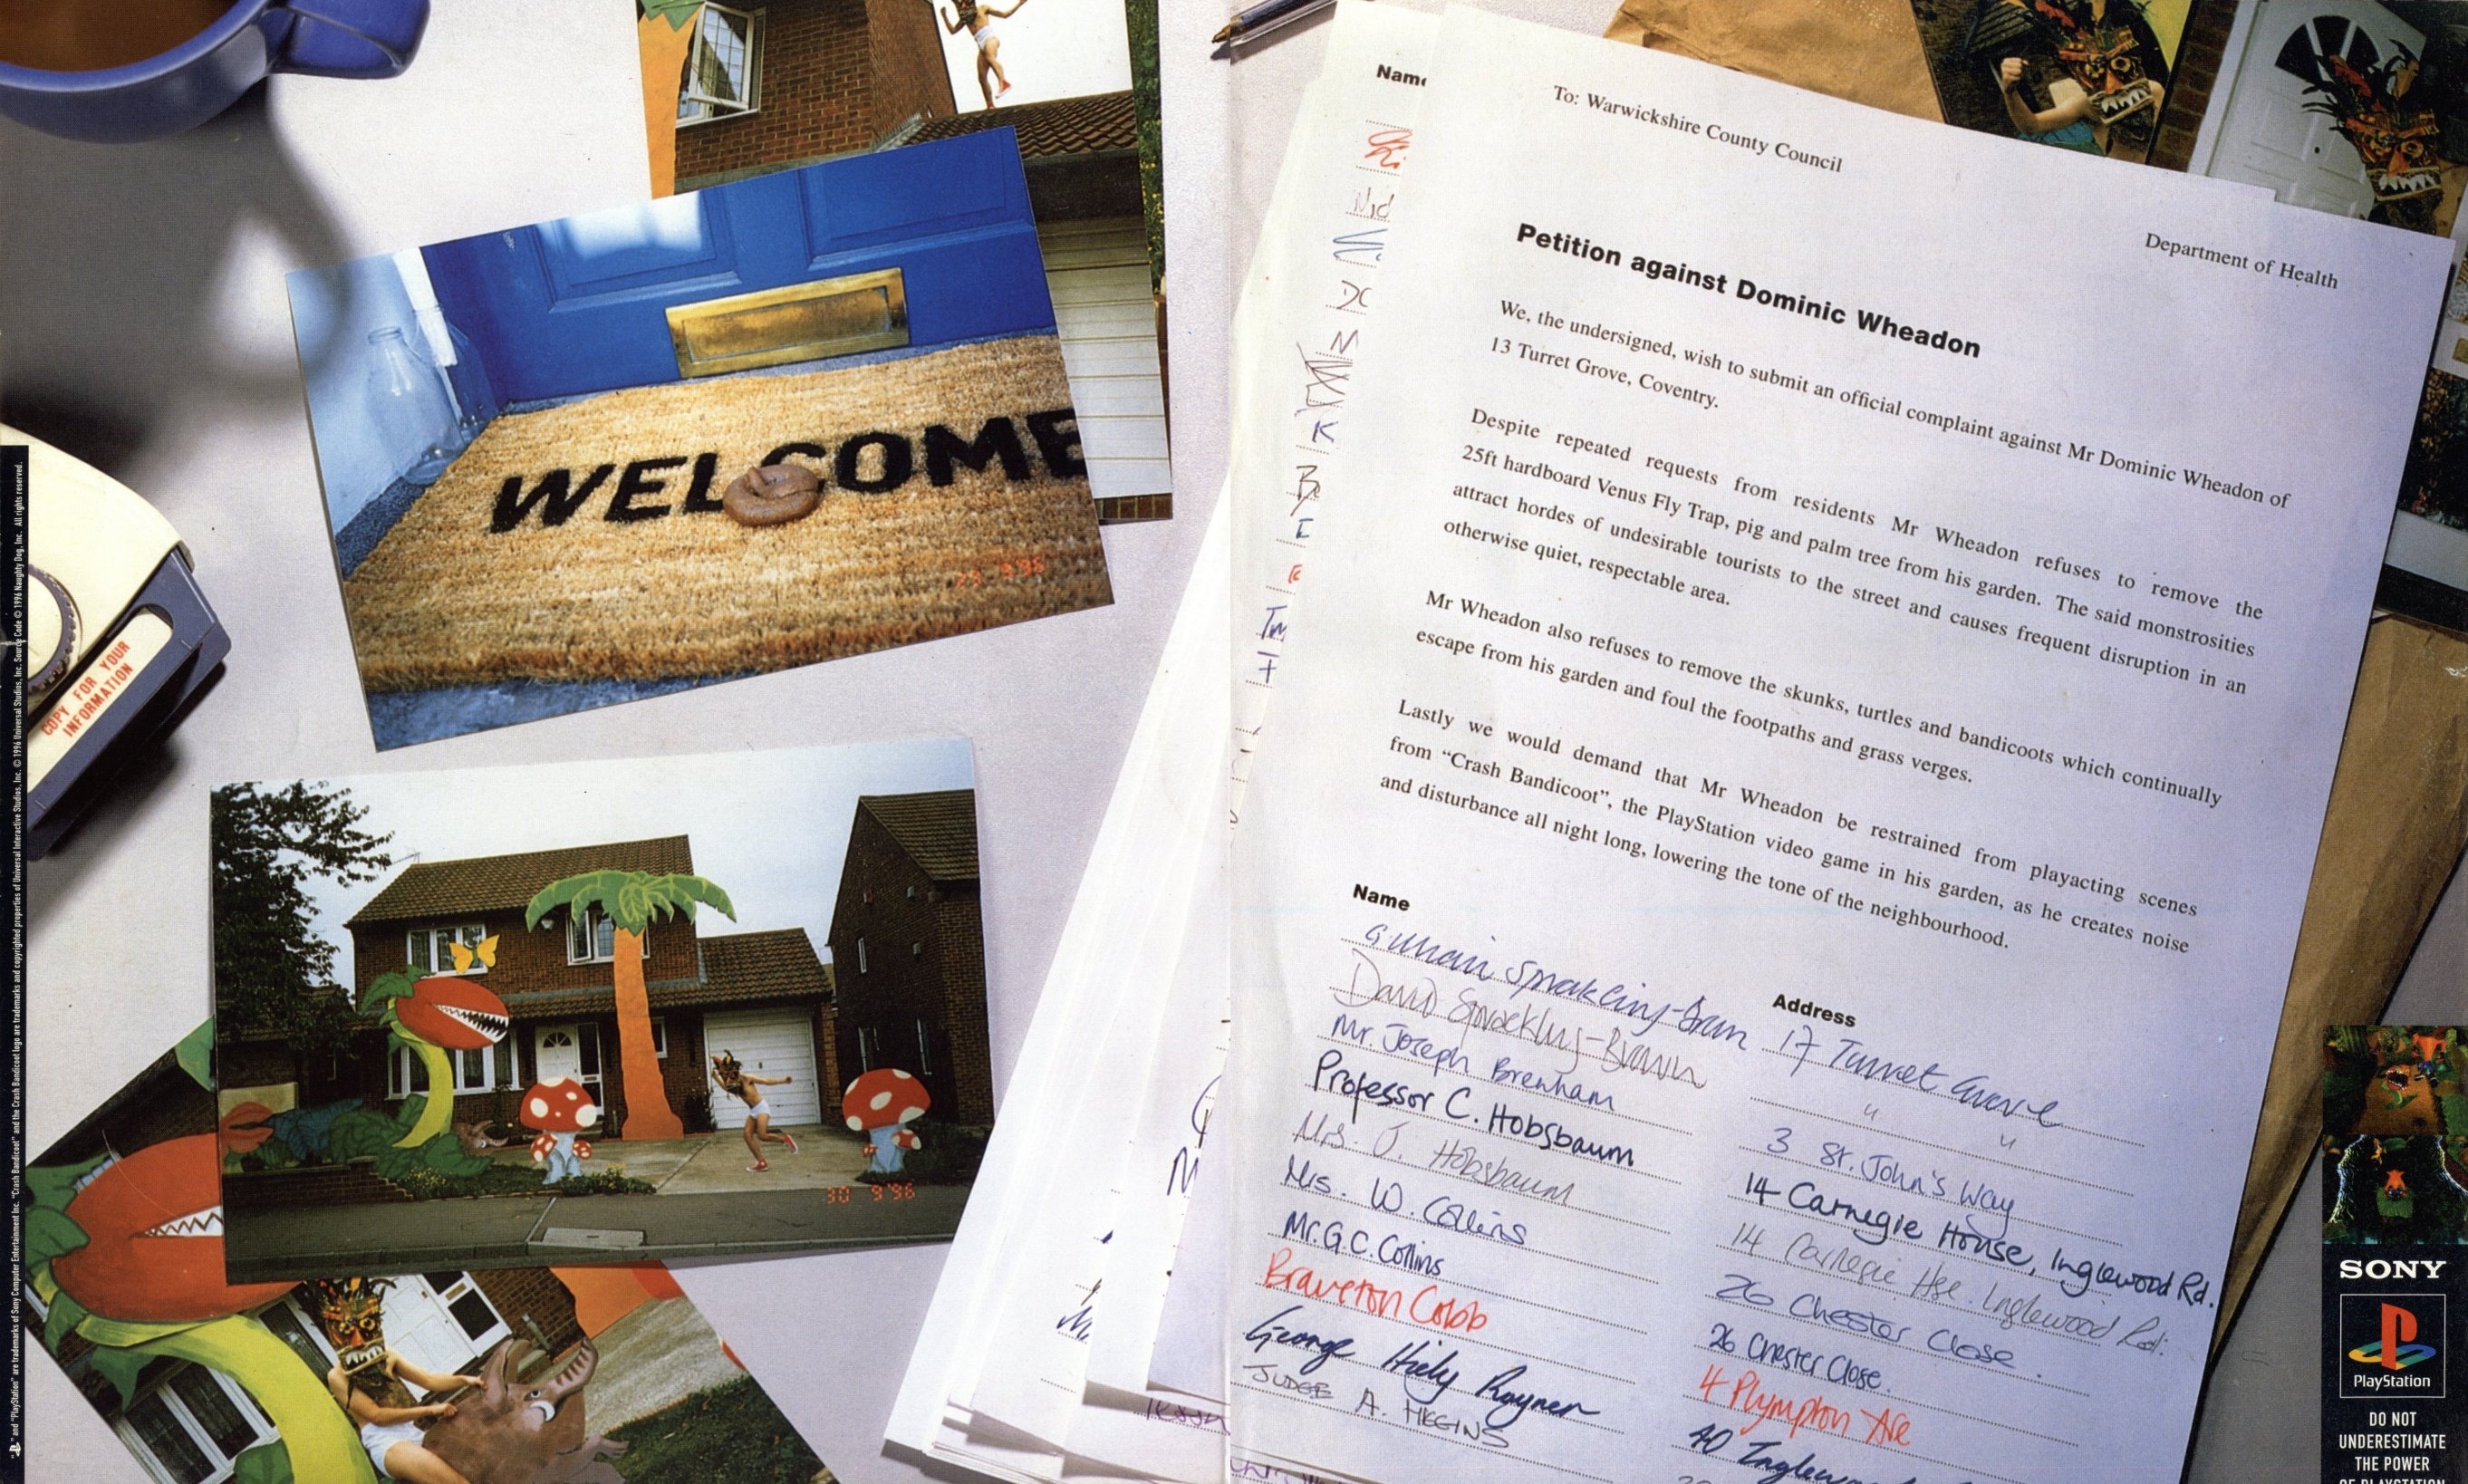 WELCOME
23 9 '96
30 9 '96
COPY FOR YOUR
INFORMATION
" " and "PlayStation" are trademarks of Sony Computer Entertainment Inc. "Crash Bandicoot" and the Crash Bandicoot logo are trademarks and copyrighted properties of Universal Interactive Studios, Inc. © 1996 Universal Studios, Inc. Source Code © 1996 Naughty Dog, Inc. All rights reserved.
Name
To: Warwickshire County Council
Department of Health
Petition against Dominic Wheadon
We, the undersigned, wish to submit an official complaint against Mr Dominic Wheadon of
13 Turret Grove, Coventry.
Despite repeated requests from residents Mr Wheadon refuses to remove the
25ft hardboard Venus Fly Trap, pig and palm tree from his garden. The said monstrosities
attract hordes of undesirable tourists to the street and causes frequent disruption in an
otherwise quiet, respectable area.
Mr Wheadon also refuses to remove the skunks, turtles and bandicoots which continually
escape from his garden and foul the footpaths and grass verges.
Lastly we would demand that Mr Wheadon be restrained from playacting scenes
from “Crash Bandicoot”, the PlayStation video game in his garden, as he creates noise
and disturbance all night long, lowering the tone of the neighbourhood.
Name Address
Sprakling-Brown 17 Turret Grove
David Sprackling-Brown " "
Mr. Joseph Brenham 3 St. John's Way
Professor C. Hobsbaum 14 Carnegie House, Inglewood Rd.
Mrs. J. Hobsbaum 14 Carnegie Hse. Inglewood Rd.
Mrs. W. Collins 26 Chester Close
Mr. G. C. Collins 26 Chester Close.
Braveton Cobb 4 Plympton Ave
George Hely Rayner 40
JUDGE A. HIGGINS
SONY
PlayStation
DO NOT
UNDERESTIMATE
THE POWER
OF PLAYSTATION